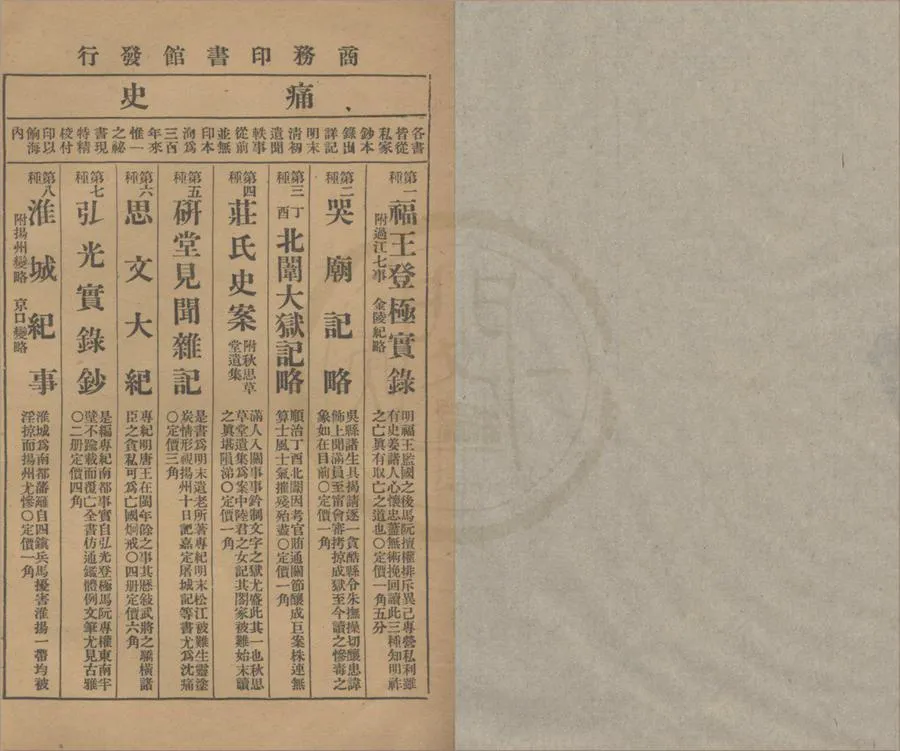 商務印書館發行
痛史
各書皆從私家鈔本錄出詳記明末清初遺聞軼事從前並無印本洵爲三百年來惟一之祕書現特精校付印以餉海內
第一種 福王登極實錄
附過江七事 金陵紀略
明福王監國之後馬阮擅權排斥異己專營私利雖
有史姜諸人心懷忠藎無術挽回讀此三種知明祚
之亡眞有取亡之道也〇定價一角五分
第二種 哭廟記略
吳縣諸生具揭請逐一貪酷縣令朱撫操切釀患諱
飾上聞滿員至甯會審拷掠成獄至今讀之慘毒之
象如在目前〇定價一角
第三種 丁酉北闈大獄記略
順治丁酉北闈因考官賄通關節釀成巨案株連無
算士風士氣摧殘殆盡〇定價一角
第四種 莊氏史案
附秋思草堂遺集
滿人入關事事鈐制文字之獄尤盛此其一也秋思
草堂遺集爲案中陸君之女記其閤家被難始末讀
之眞堪隕涕〇定價一角
第五種 研堂見聞雜記
是書爲明末遺老所著專紀明末松江被難生靈塗
炭情形視揚州十日記嘉定屠城記等書尤爲沈痛
〇定價三角
第六種 思文大紀
專紀明唐王在閩年餘之事其歷敍武將之驕橫諸
臣之貪私可爲亡國炯戒〇四册定價六角
第七種 弘光實錄鈔
是編專紀南都事實自弘光登極馬阮專權東南半
壁不踰載而覆亡全書仿通鑑體例文筆尤見古雅
〇二册定價四角
第八種 淮城紀事
附揚州變略 京口變略
淮城爲南都藩籬自四鎭兵馬擾害淮揚一帶均被
淫掠而揚州尤慘〇定價一角